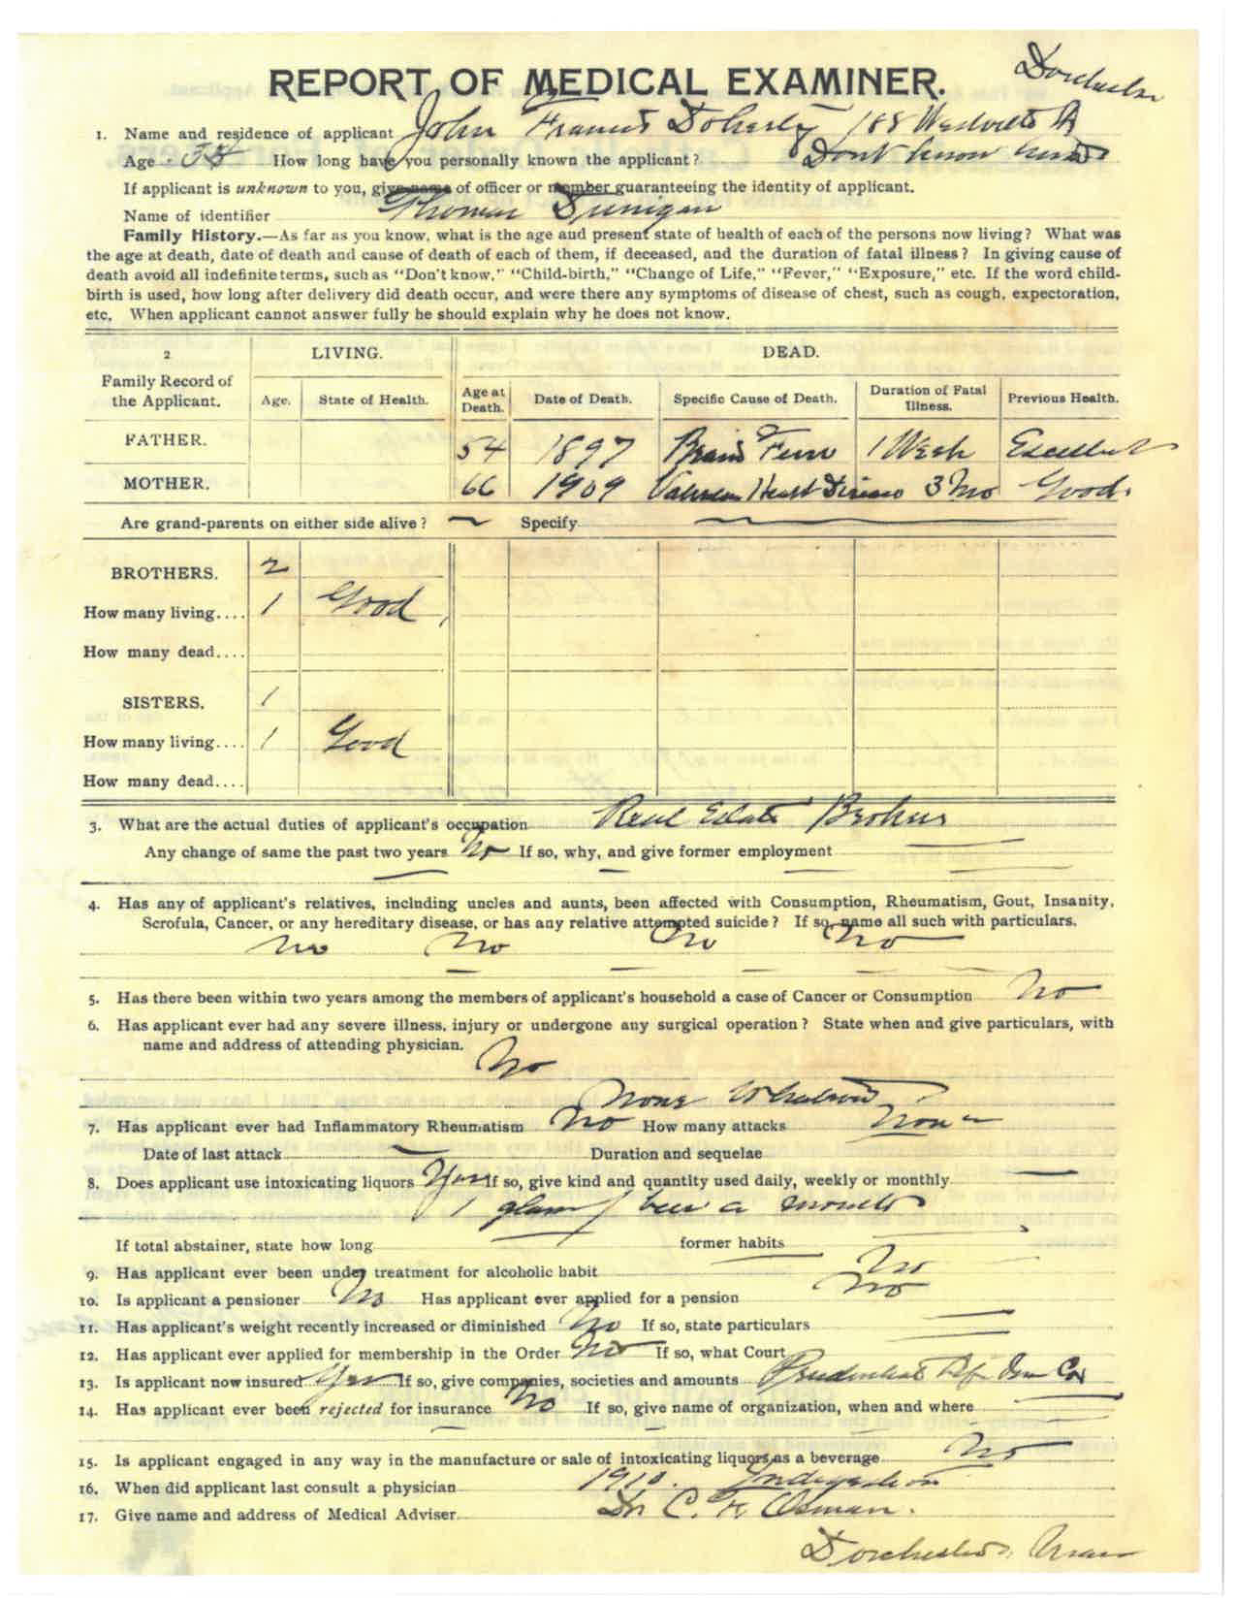 Dorchester
REPORT OF MEDICAL EXAMINER.
1. Name and residence of applicant John Francis Doherty 188 Westville St
Age 38 How long have you personally known the applicant? Dont know him
If applicant is unknown to you, give name of officer or member guaranteeing the identity of applicant.
Name of identifier Thomas Dunigan
Family History.—As far as you know, what is the age and present state of health of each of the persons now living? What was
the age at death, date of death and cause of death of each of them, if deceased, and the duration of fatal illness? In giving cause of
death avoid all indefinite terms, such as "Don't know," "Child-birth," "Change of Life," "Fever," "Exposure," etc. If the word child-
birth is used, how long after delivery did death occur, and were there any symptoms of disease of chest, such as cough, expectoration,
etc. When applicant cannot answer fully he should explain why he does not know.
2 LIVING. DEAD.
Family Record of the Applicant. Age. State of Health. Age at Death. Date of Death. Specific Cause of Death. Duration of Fatal Illness. Previous Health.
FATHER. 54 1897 Brain Fever 1 Week Excellent
MOTHER. 66 1909 Valvular Heart Disease 3 Mo Good.
Are grand-parents on either side alive? Specify
BROTHERS. 2
How many living.... 1 Good
How many dead....
SISTERS. 1
How many living.... 1 Good
How many dead....
3. What are the actual duties of applicant's occupation Real Estate Broker
Any change of same the past two years No If so, why, and give former employment
4. Has any of applicant's relatives, including uncles and aunts, been affected with Consumption, Rheumatism, Gout, Insanity,
Scrofula, Cancer, or any hereditary disease, or has any relative attempted suicide? If so, name all such with particulars.
No No No No
5. Has there been within two years among the members of applicant's household a case of Cancer or Consumption No
6. Has applicant ever had any severe illness, injury or undergone any surgical operation? State when and give particulars, with
name and address of attending physician.
No
None Whatever
7. Has applicant ever had Inflammatory Rheumatism No How many attacks None
Date of last attack Duration and sequelae
8. Does applicant use intoxicating liquors Yes If so, give kind and quantity used daily, weekly or monthly
1 glass beer a month
If total abstainer, state how long former habits
9. Has applicant ever been under treatment for alcoholic habit No
10. Is applicant a pensioner No Has applicant ever applied for a pension No
11. Has applicant's weight recently increased or diminished No If so, state particulars
12. Has applicant ever applied for membership in the Order No If so, what Court
13. Is applicant now insured Yes If so, give companies, societies and amounts Prudential Life Ins Co
14. Has applicant ever been rejected for insurance No If so, give name of organization, when and where
15. Is applicant engaged in any way in the manufacture or sale of intoxicating liquors as a beverage No
16. When did applicant last consult a physician 1910. Indigestion
17. Give name and address of Medical Adviser Dr C. F. Osman.
Dorchester, Mass